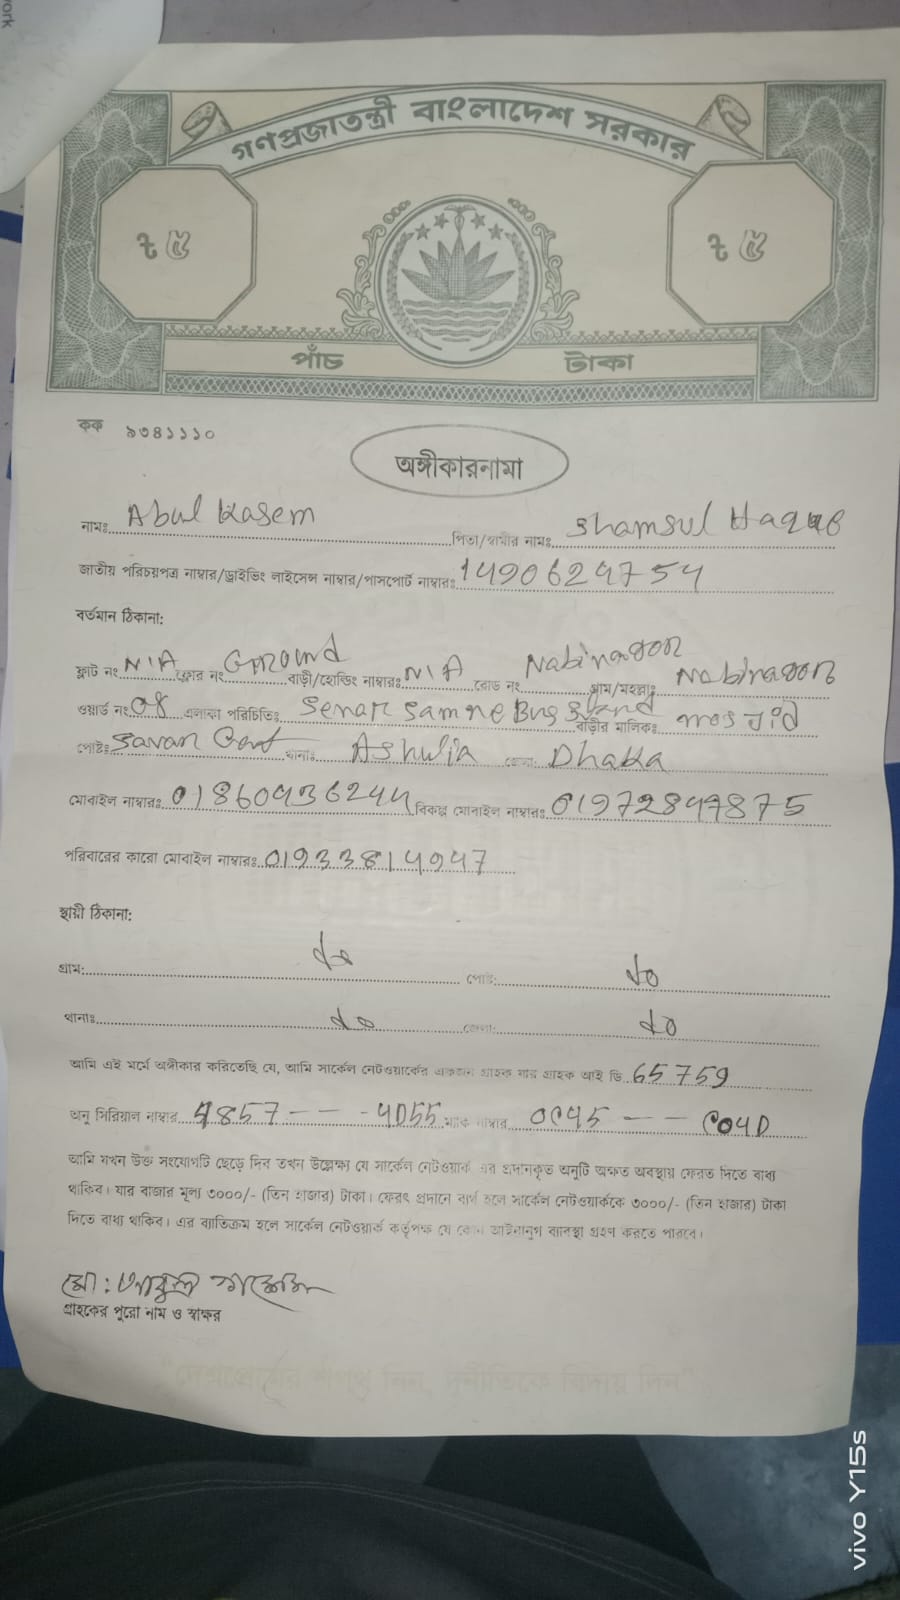 গণপ্রজাতন্ত্রী বাংলাদেশ সরকার
৳ ৫ ৳ ৫
পাঁচ টাকা
কক ৯৩৪১১১০
অঙ্গীকারনামা
নামঃ Abul Kasem পিতা/স্বামীর নামঃ Shamsul Haque
জাতীয় পরিচয়পত্র নাম্বার/ড্রাইভিং লাইসেন্স নাম্বার/পাসপোর্ট নাম্বারঃ 1490629754
বর্তমান ঠিকানা:
ফ্লাট নং N/A ফ্লোর নং Ground বাড়ী/হোল্ডিং নাম্বারঃ N/A রোড নং Nabinagor গ্রাম/মহল্লাঃ Nabinagor
ওয়ার্ড নং 08 এলাকা পরিচিতিঃ Senar Samne Bus Stand বাড়ীর মালিকঃ mosjid
পোষ্টঃ Savar Cent থানাঃ Ashulia জেলা: Dhaka
মোবাইল নাম্বারঃ বিকল্প মোবাইল নাম্বারঃ 01972847875
পরিবারের কারো মোবাইল নাম্বারঃ 01933814947
স্থায়ী ঠিকানা:
গ্রাম: do পোষ্ট: do
থানাঃ do জেলা: do
আমি এই মর্মে অঙ্গীকার করিতেছি যে, আমি সার্কেল নেটওয়ার্কের একজন গ্রাহক যার গ্রাহক আই ডি 65759
অনু সিরিয়াল নাম্বার 4857 --- 4D55 ম্যাক নাম্বার 0C45 --- C04D
আমি যখন উক্ত সংযোগটি ছেড়ে দিব তখন উল্লেক্ষ্য যে সার্কেল নেটওয়ার্ক এর প্রদানকৃত অনুটি অক্ষত অবস্থায় ফেরত দিতে বাধ্য
থাকিব। যার বাজার মূল্য ৩০০০/- (তিন হাজার) টাকা। ফেরৎ প্রদানে ব্যর্থ হলে সার্কেল নেটওয়ার্ককে ৩০০০/- (তিন হাজার) টাকা
দিতে বাধ্য থাকিব। এর ব্যাতিক্রম হলে সার্কেল নেটওয়ার্ক কর্তৃপক্ষ যে কোন আইনানুগ ব্যাবস্থা গ্রহণ করতে পারবে।
মো: আবুল কাশেম
গ্রাহকের পুরো নাম ও স্বাক্ষর
"দেশপ্রেমের শপথ নিন, দুর্নীতিকে বিদায় দিন"
vivo Y15s